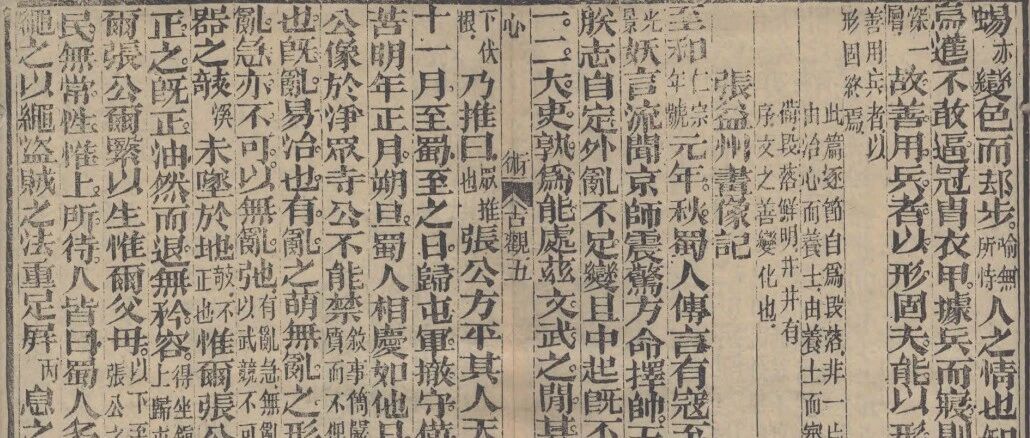 蜴亦變色而却步喻無所恃人之情也知
烏獲不敢逼冠冑衣甲據兵而寢則
深一層故善用兵者以形固夫能以形
善用兵者以
形固終焉
此篇逐節自為段落非一片
由治心而養士由養士而審
段落鮮明井井有
序文之善變化也
張益州畫像記
至和仁宗年號元年秋蜀人傳言有寇至
妖言流聞京師震驚方命擇帥天
朕志自定外亂不足變且中起既不
一二大吏孰為能處茲文武之閒其
心術 古觀五
乃推曰眾推也張公方平其人天
十一月至蜀至之日歸屯軍撤守備
苦明年正月朔旦蜀人相慶如他日
公像於淨眾寺公不能禁敘事簡嚴質而不俚
也既亂易治也有亂之萌無亂之形
亂急亦不可以無亂弛有亂急無以武競不可
器之攲溪未墜於地攲不正也惟爾張公
正之既正油然而退無矜容
爾張公爾繄以生惟爾父母以下至張公之
民無常性惟上所待人皆曰蜀人多
繩之以繩盜賊之法重足屏丙息之